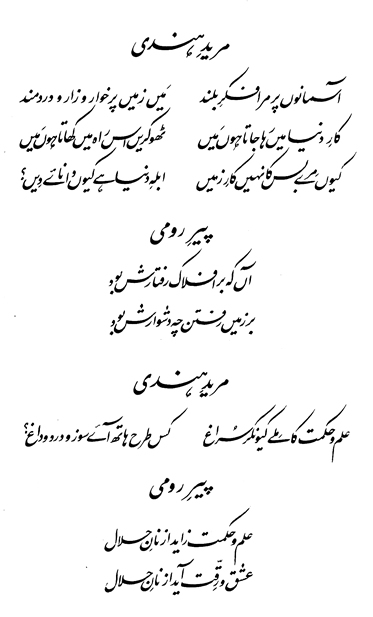 مریدِ ہندی
آسمانوں پر مرا فکرِ بلند میں زمیں پر خوار و زار و دردمند
کارِ دنیا میں رہا جاتا ہوں میں ٹھوکریں اس راہ میں کھاتا ہوں میں
کیوں مرے بس کا نہیں کارِ زمیں ابلہِ دنیا ہے کیوں دانائے دیں؟
پیرِ رومی
آں کہ بر افلاک رفتارش بود
بر زمیں رفتن چہ دشوارش بود
مریدِ ہندی
علم و حکمت کا ملے کیونکر سراغ کس طرح ہاتھ آئے سوز و درد و داغ؟
پیرِ رومی
علم و حکمت زاید از نانِ حلال
عشق و رقّت آید از نانِ حلال